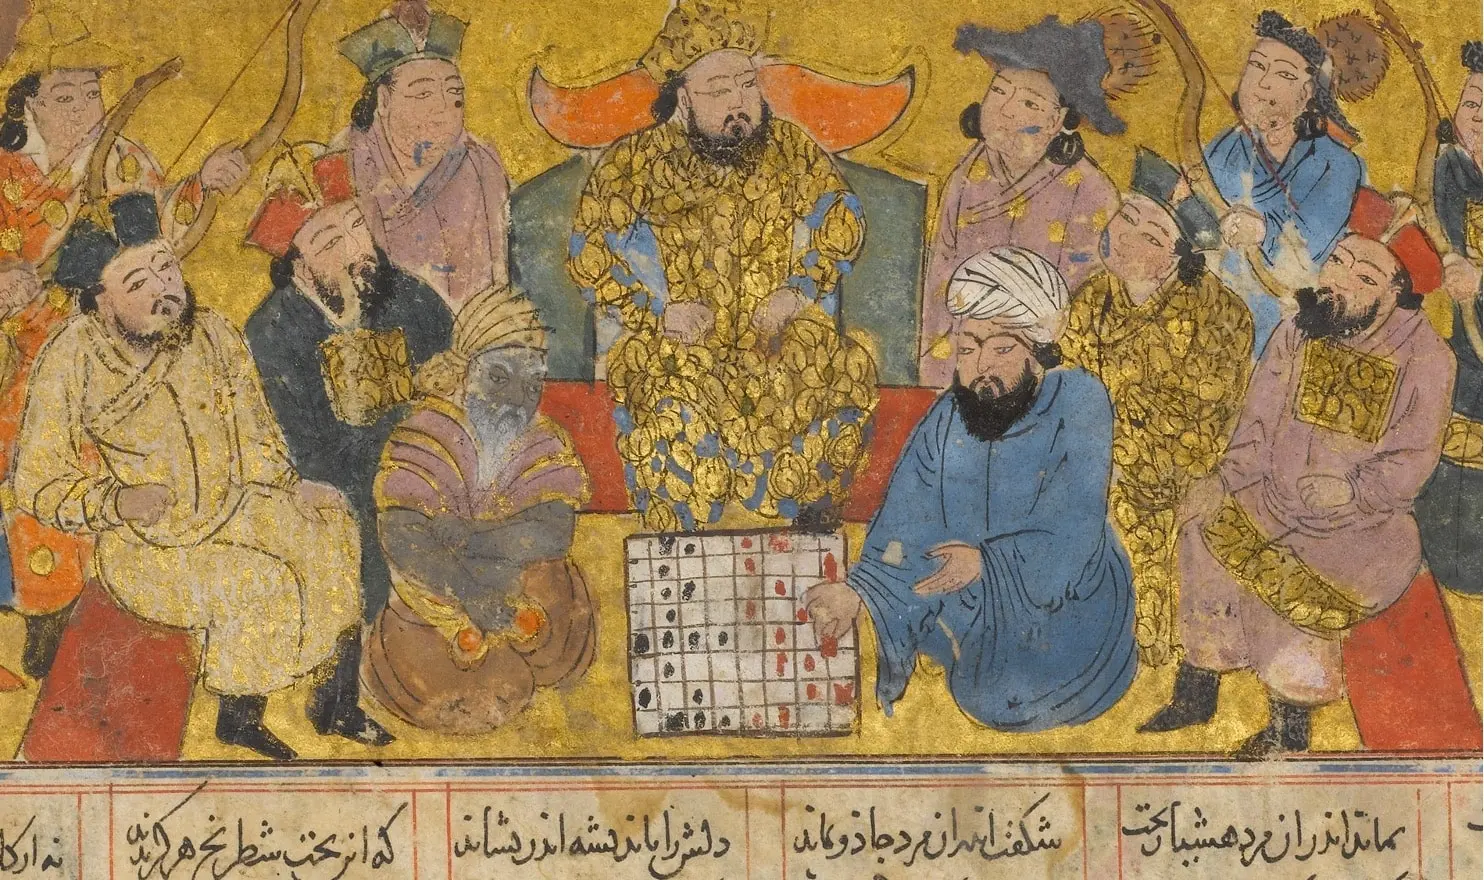 بماند اندران مرد هشیار بخت شکفت اندران مرد جادو بماند دلش را باندیشه اندر نشاند که این تخت شطرنج هرگز ندید نه از کا